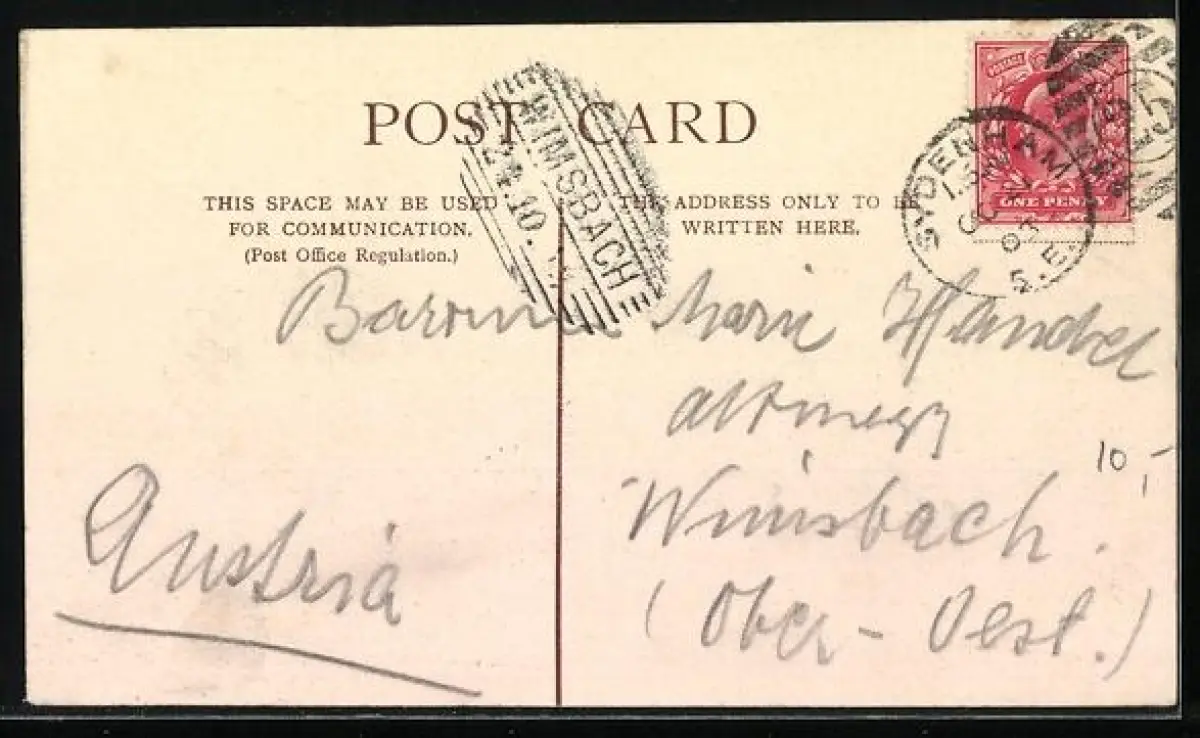 POST CARD
THIS SPACE MAY BE USED
FOR COMMUNICATION.
(Post Office Regulation.)
THE ADDRESS ONLY TO BE
WRITTEN HERE.
WIMSBACH
24.10.
POSTAGE
ONE PENNY
SYDENHAM
S.E.
Marie Handel
Wimsbach.
(Ober-Oest.)
10,-
Austria